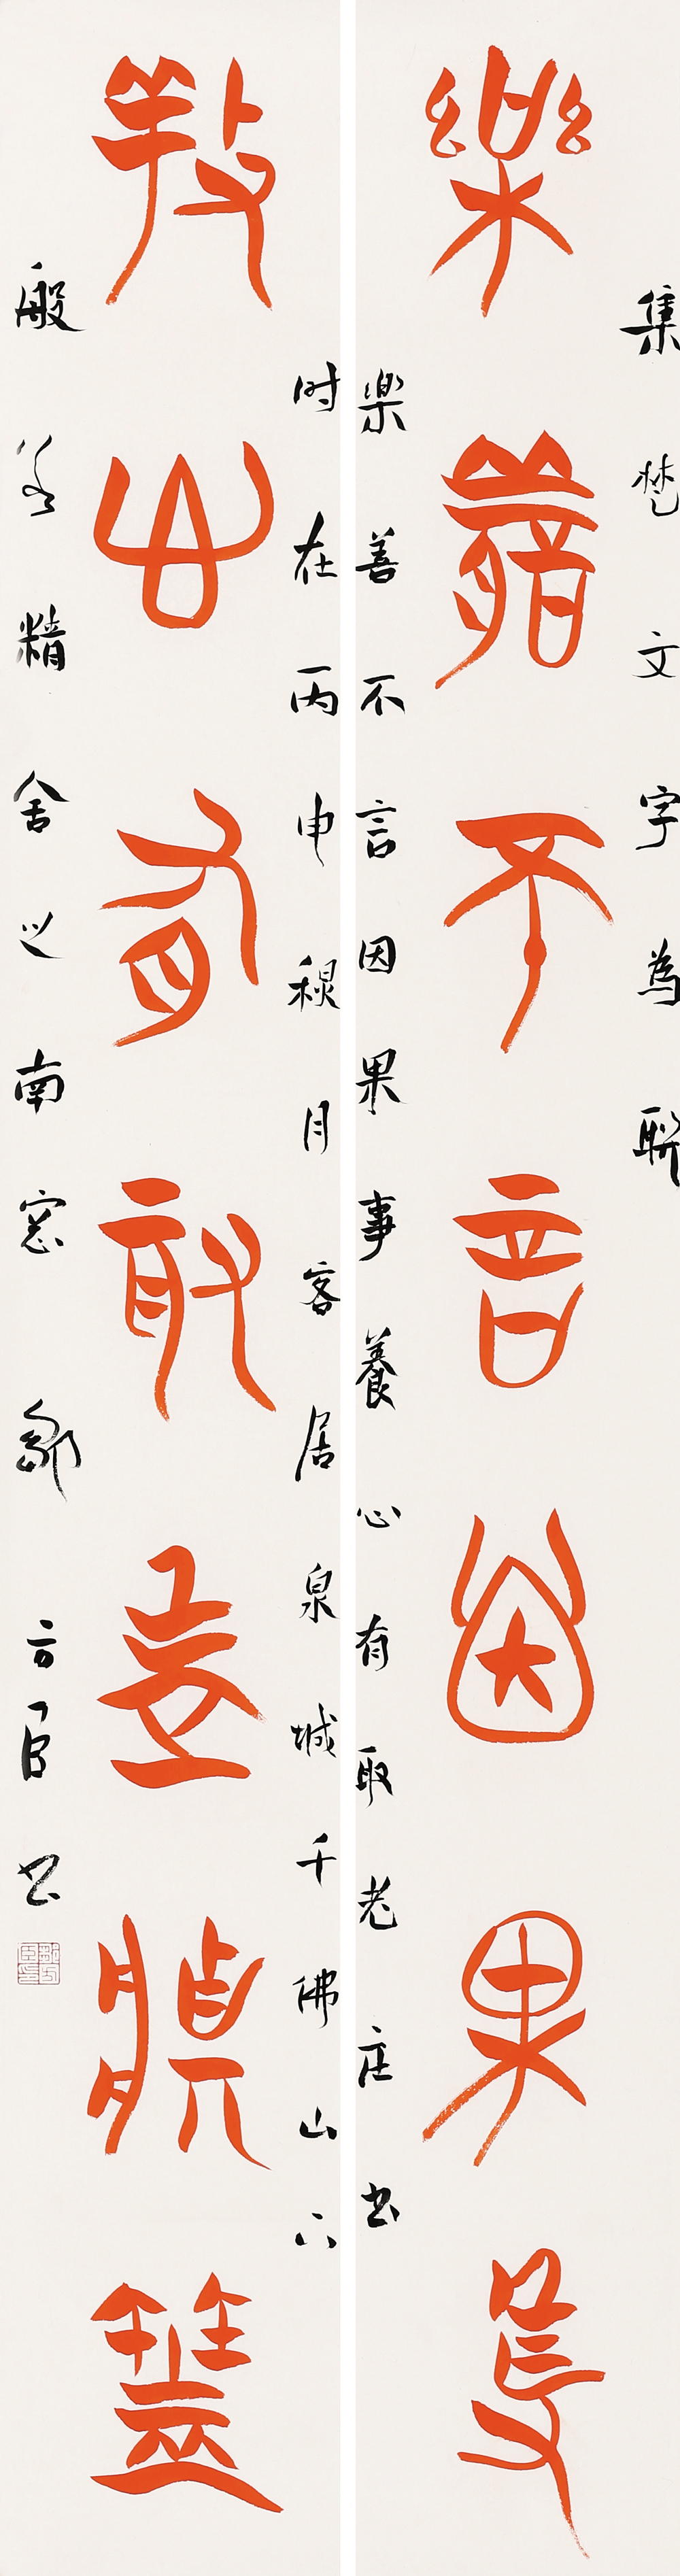 集楚文字為聯
樂善不言因果事
樂善不言因果事養心有取老庄書
養心有取老庄書
时在丙申穐月客居泉城千佛山下
般若精舍之南窓 鄒方臣书